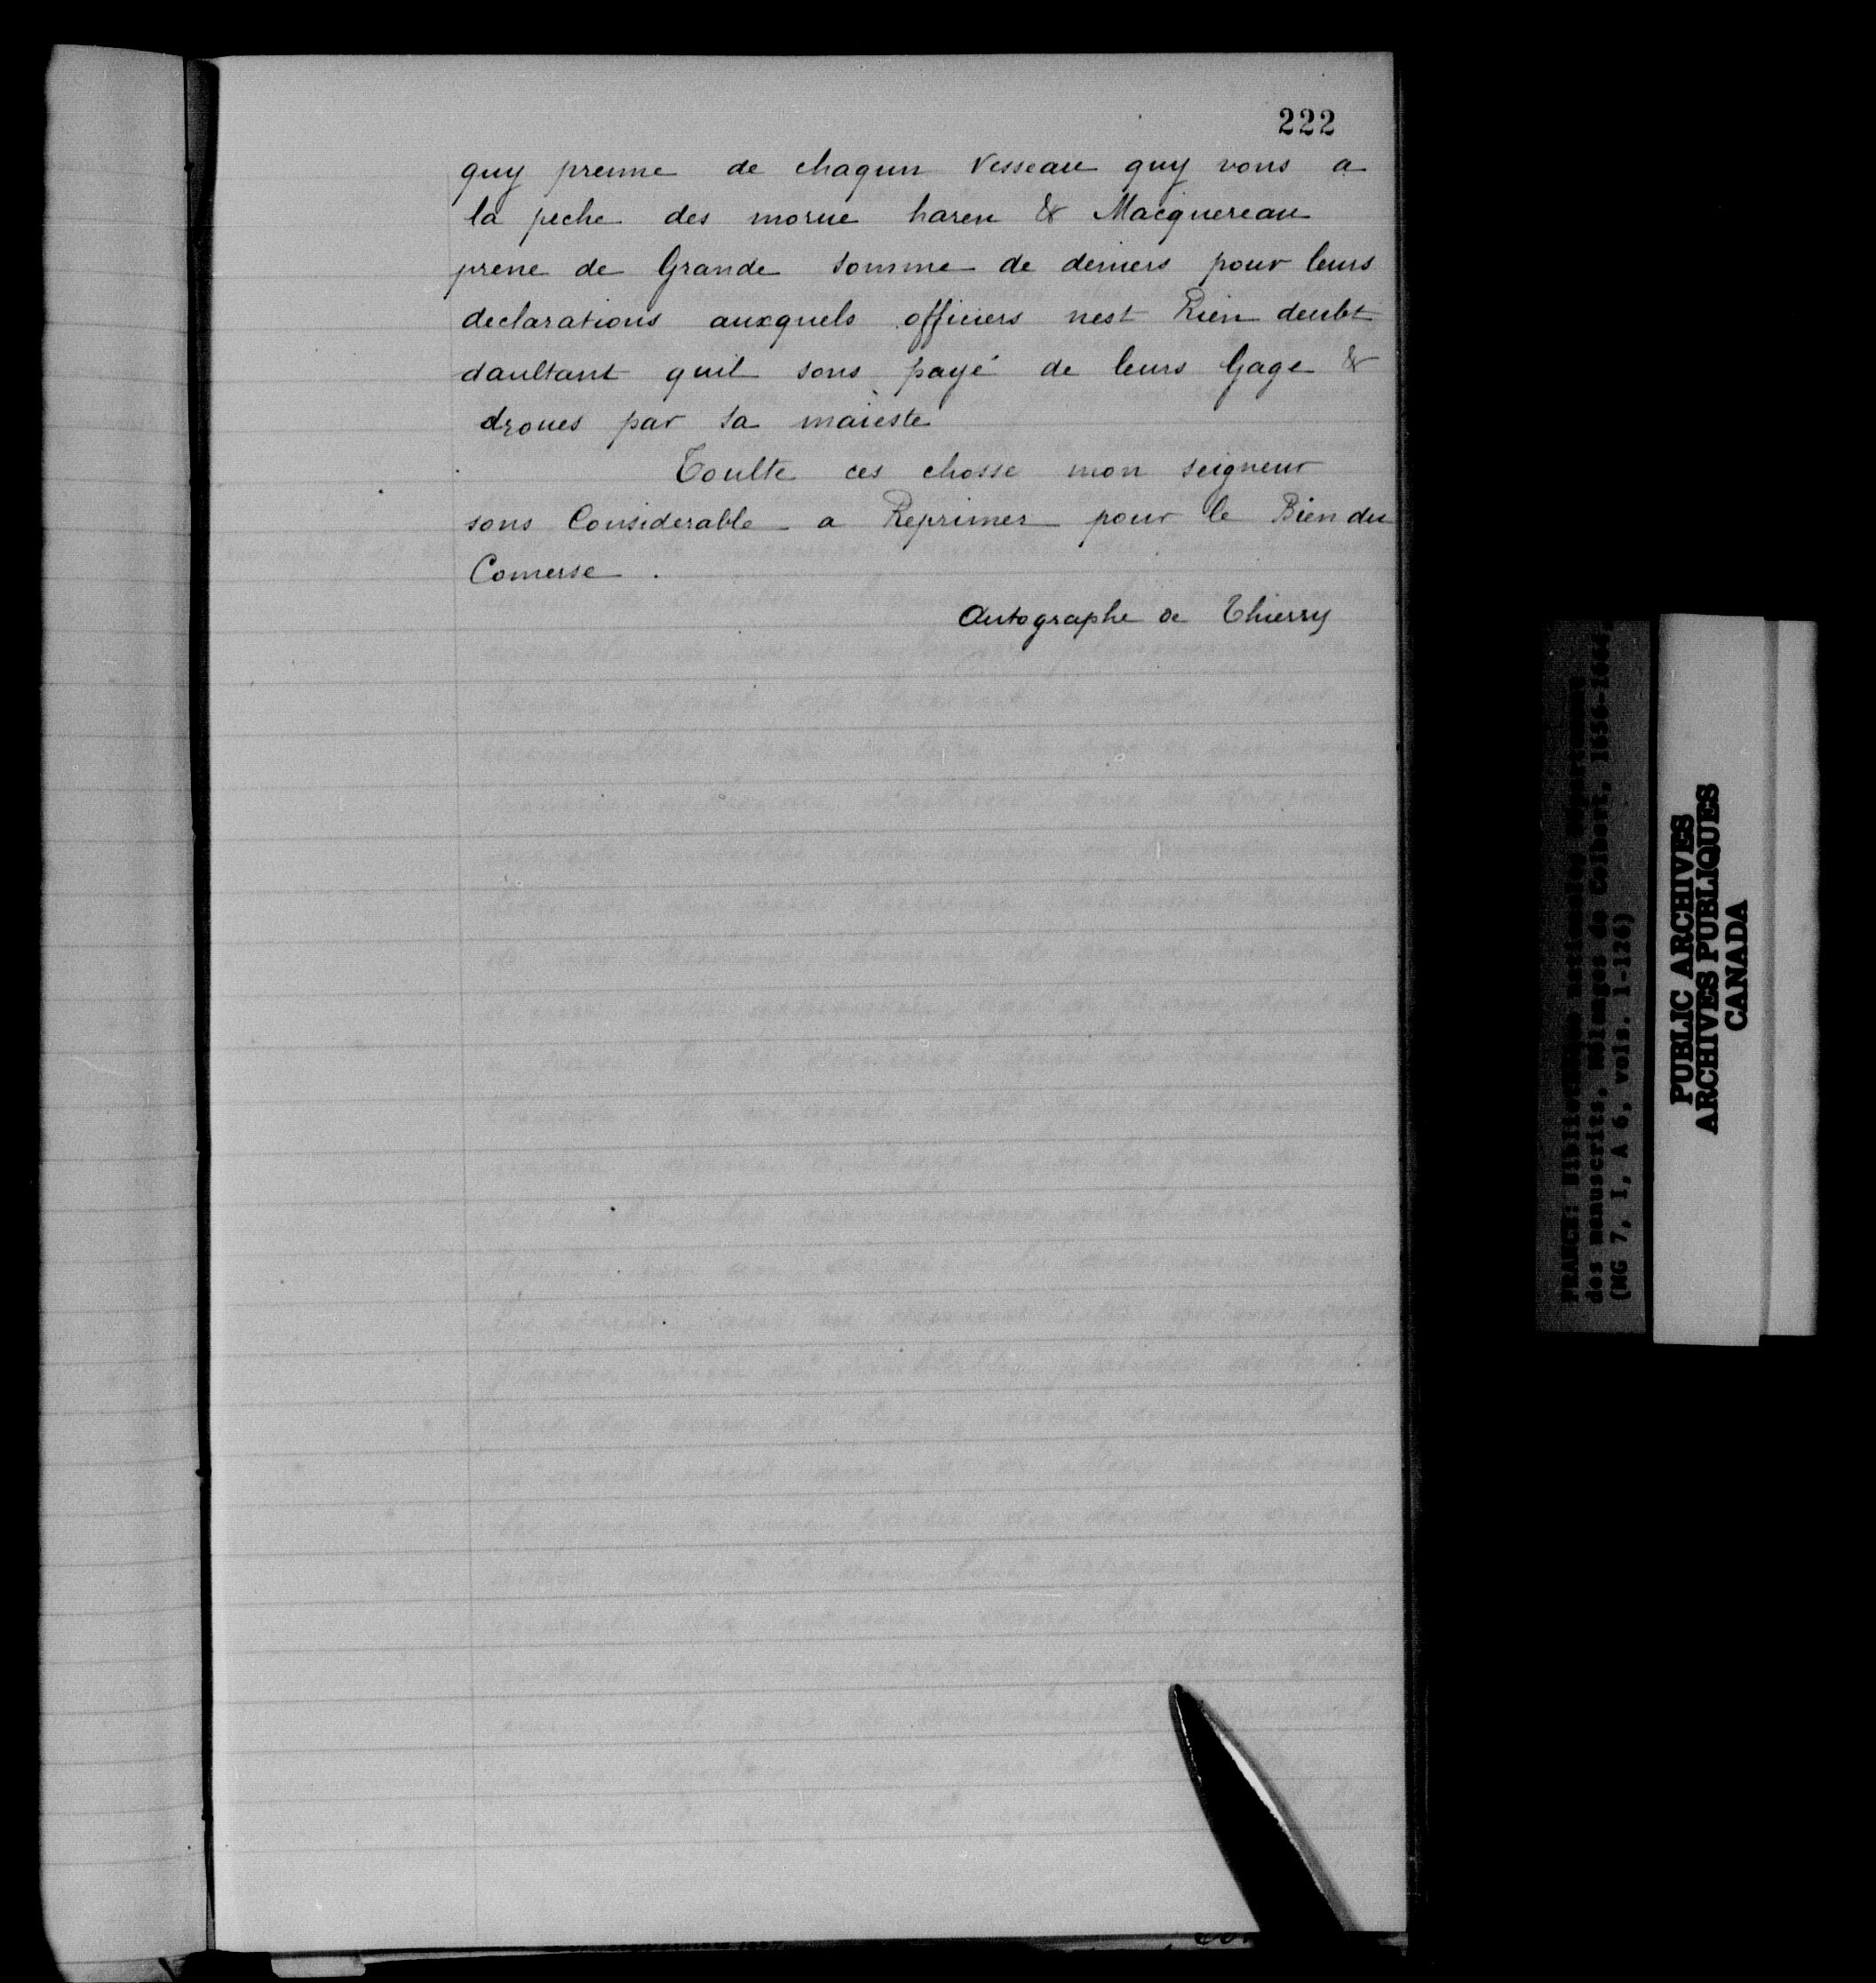 222
quy prenne de chaqun vesseau quy vons a
la peche des morue haren & Macquereau
prene de Grande somme de deniers pour leurs
declarations auxquels officiers nest Rien deubt
daultant quil sons payé de leurs Gage &
droues par sa maieste
Toulte ces chosse mon seigneur
sons Considerable a Reprimer pour le Bien du
Comerse .
Autographe de Thierry
FRANCE: Bibliothèque nationale, Département
des manuscrits. Mélanges de Colbert, 1656-
(MG 7, I, A 6, vols. 1-126)
PUBLIC ARCHIVES
ARCHIVES PUBLIQUES
CANADA